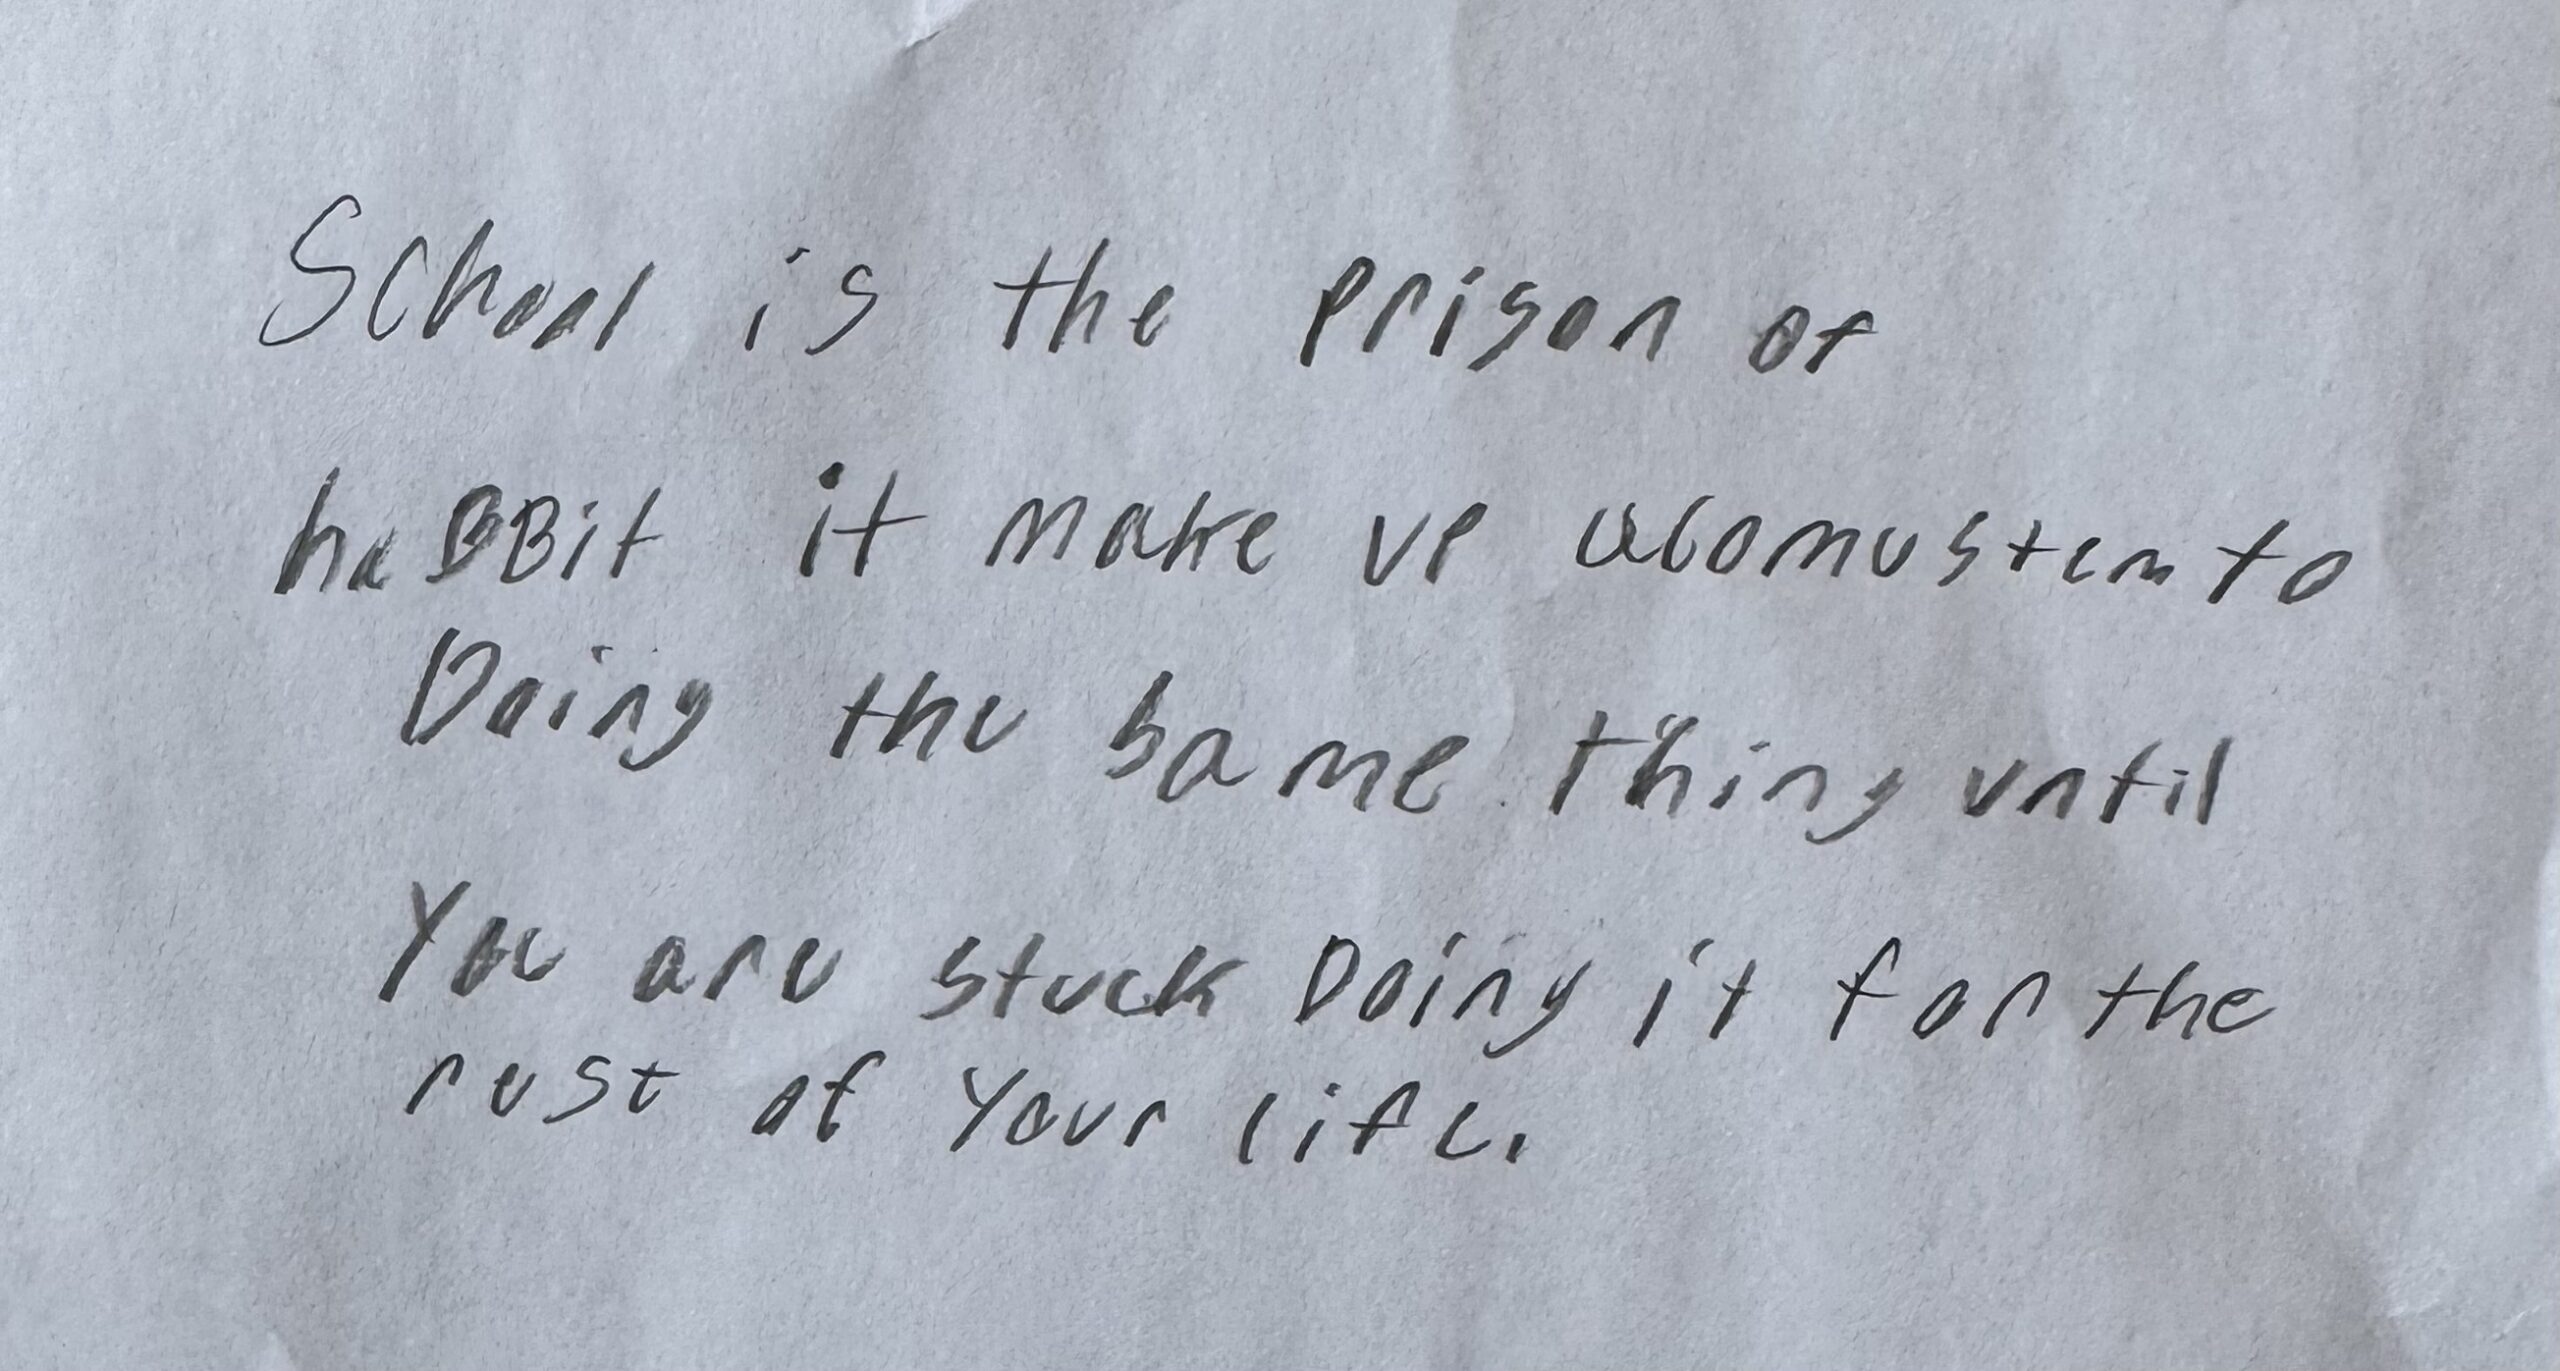 School is the prison of
habbit it make ve acomustem to
Doing the same thing until
You are stuck Doing it for the
rest of Your life.